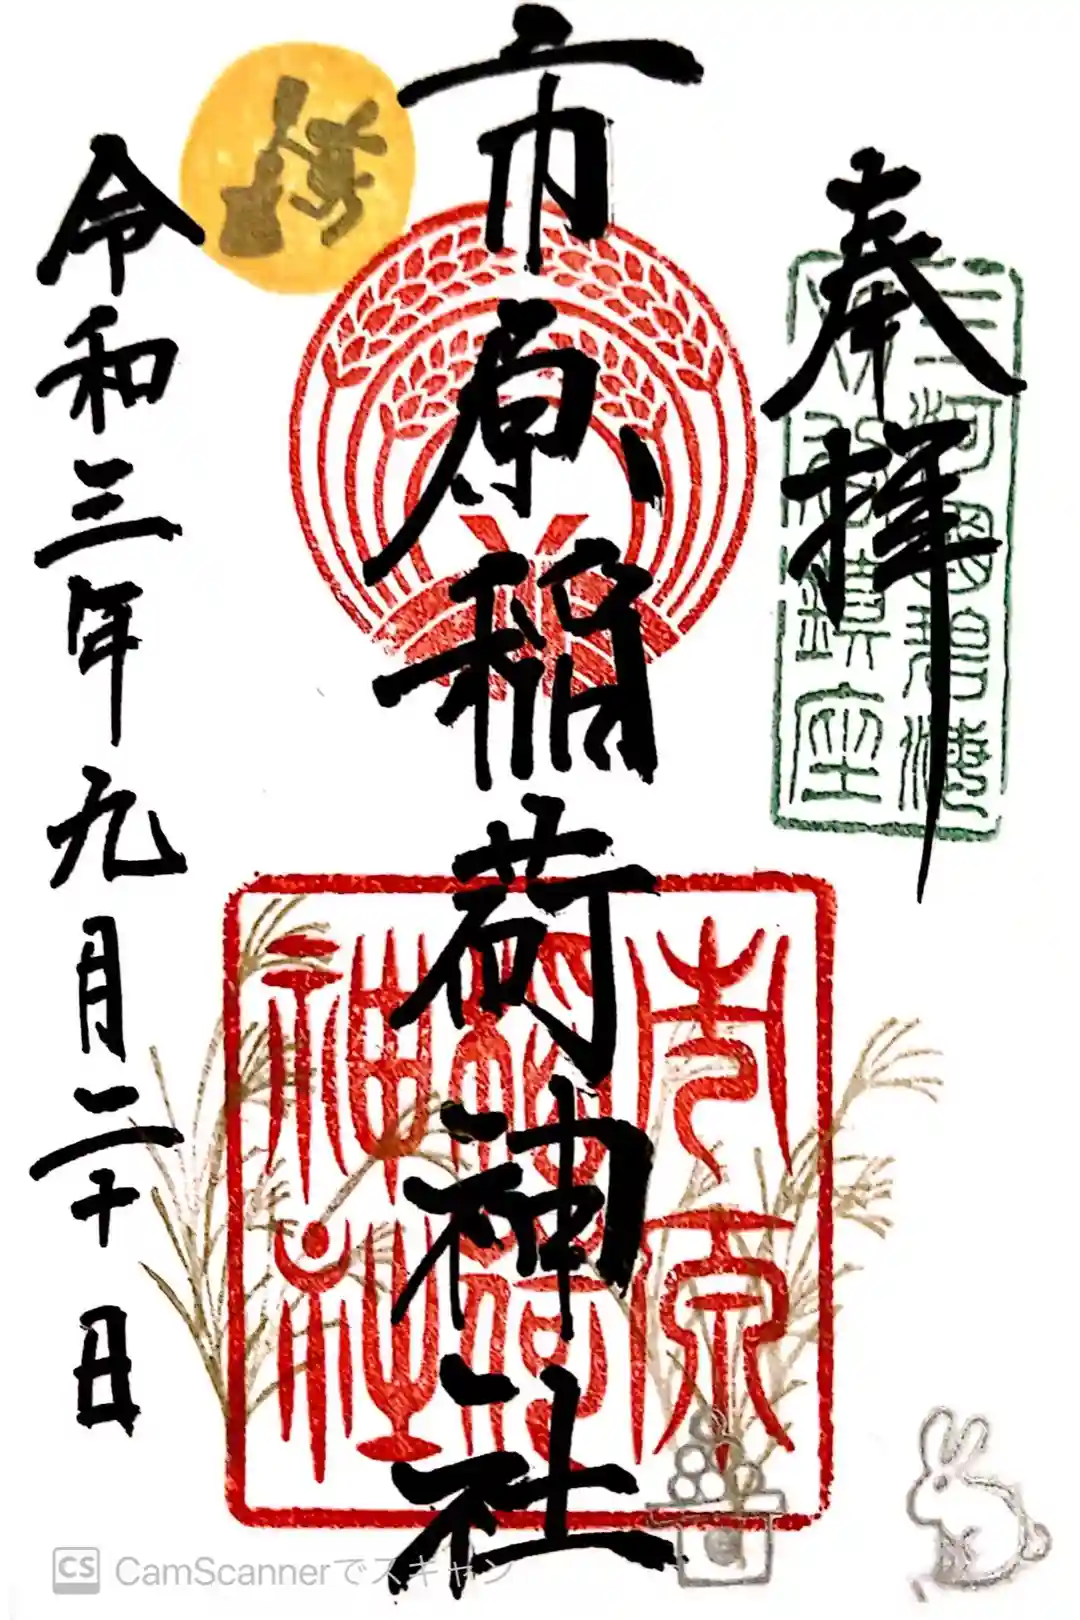 奉拝
三河國碧海
鎮座
市原稲荷神社
市原
稲荷
神社
令和三年九月二十日
CS CamScannerでスキャン